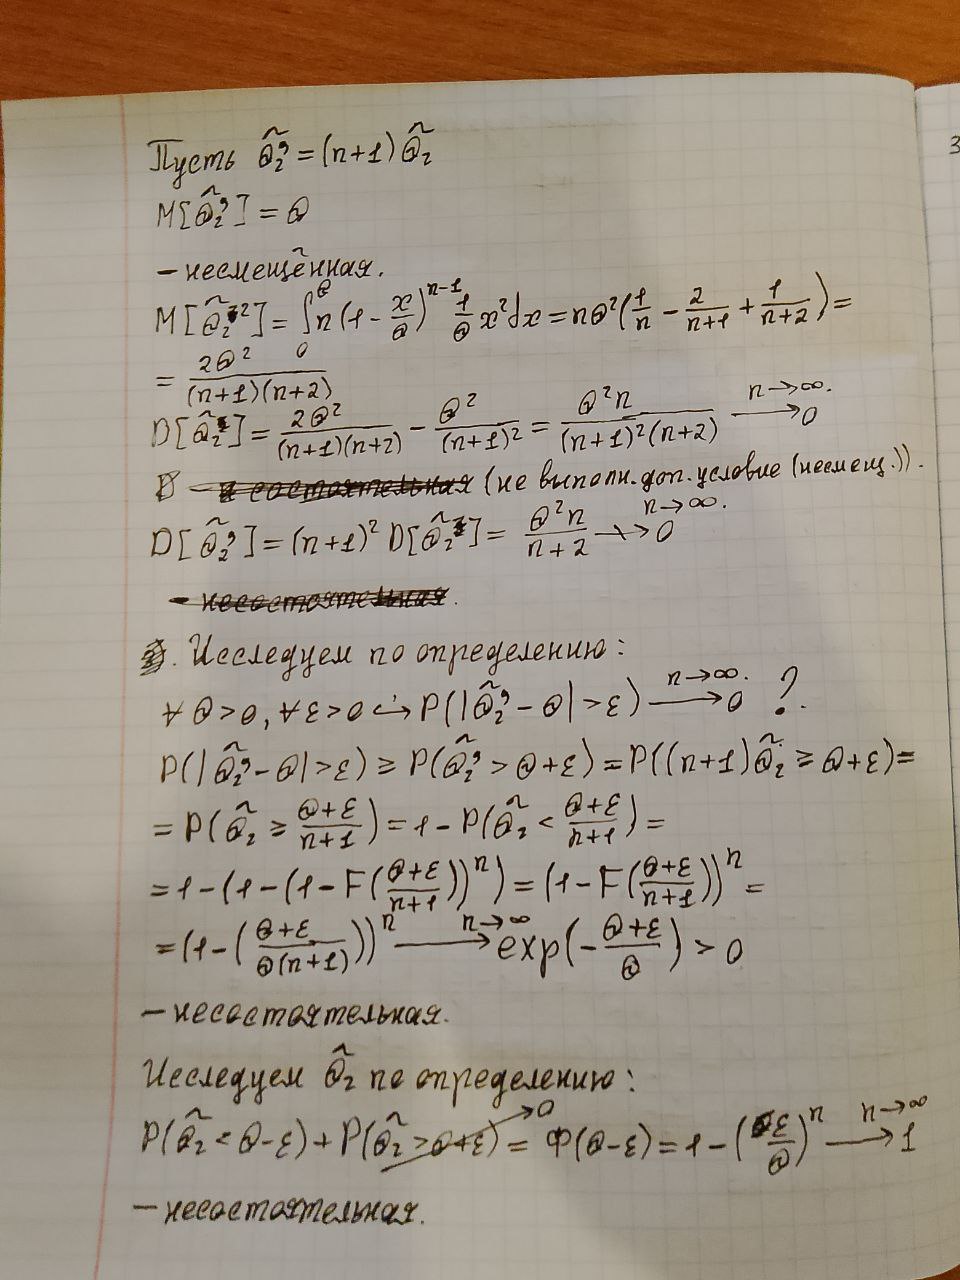 Пусть θ̃₂' = (n+1) θ̃₂
M[θ̃₂'] = θ
– несмещённая.
M[θ̃₂²] = ∫₀^θ n(1 - x/θ)^(n-1) 1/θ x² dx = nθ²(1/n - 2/(n+1) + 1/(n+2)) =
= 2θ²/((n+1)(n+2))
D[θ̃₂] = 2θ²/((n+1)(n+2)) - θ²/(n+1)² = θ²n/((n+1)²(n+2)) → 0 n→∞.
(не выполн. доп. условие (несмещ.)).
D[θ̃₂'] = (n+1)² D[θ̃₂] = θ²n/(n+2) ↛ 0 n→∞.
Исследуем по определению:
∀ θ>0, ∀ ε>0 ↪ P(|θ̃₂' - θ| > ε) → 0 n→∞. ?
P(|θ̃₂' - θ| > ε) ≥ P(θ̃₂' > θ+ε) = P((n+1)θ̃₂ ≥ θ+ε) =
= P(θ̃₂ ≥ (θ+ε)/(n+1)) = 1 - P(θ̃₂ < (θ+ε)/(n+1)) =
= 1 - (1 - (1 - F((θ+ε)/(n+1)))ⁿ) = (1 - F((θ+ε)/(n+1)))ⁿ =
= (1 - ((θ+ε)/(θ(n+1))))ⁿ → exp(-(θ+ε)/θ) > 0 n→∞
– несостоятельная.
Исследуем θ̃₂ по определению:
P(θ̃₂ < θ-ε) + P(θ̃₂ > θ+ε) → 0 = Φ(θ-ε) = 1 - (ε/θ)ⁿ → 1 n→∞
– несостоятельная.